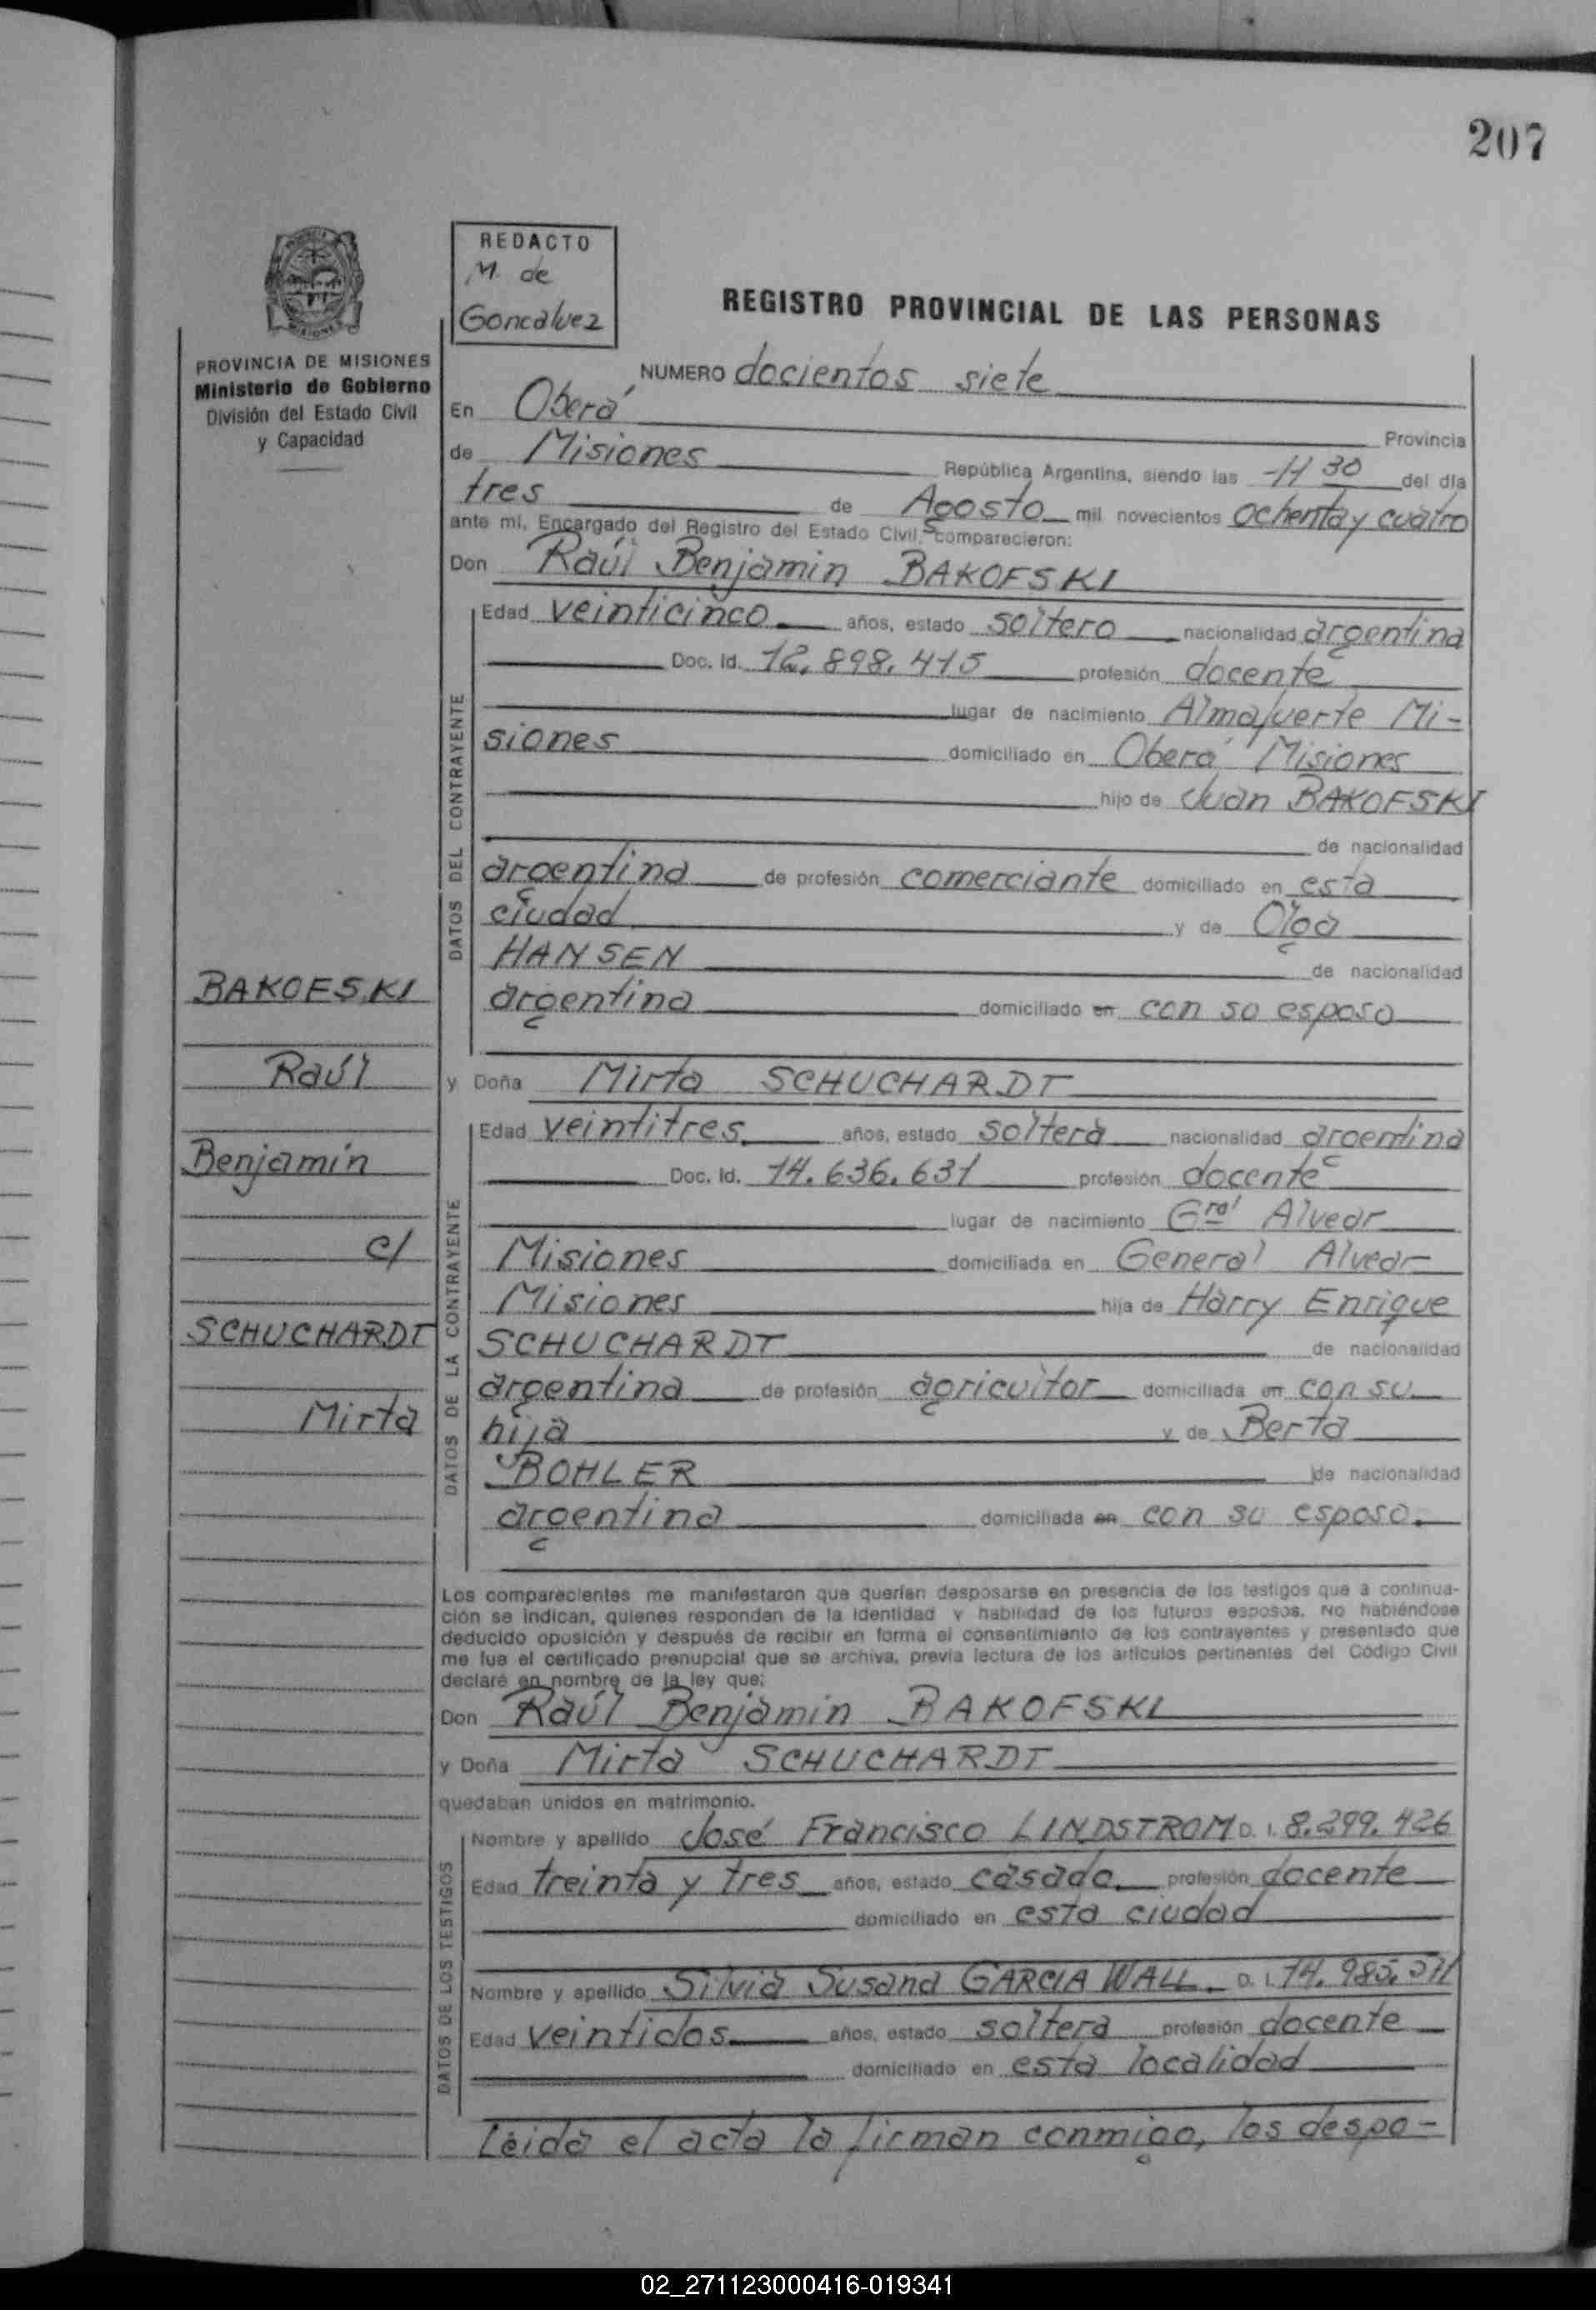 207
REDACTO
M. de
Goncalvez
REGISTRO PROVINCIAL DE LAS PERSONAS
PROVINCIA DE MISIONES
Ministerio de Gobierno
División del Estado Civil
y Capacidad
NUMERO docientos siete
En Oberá Provincia
de Misiones República Argentina, siendo las 11 30 del día
tres de Agosto mil novecientos ochenta y cuatro
ante mí, Encargado del Registro del Estado Civil, comparecieron:
Don Raúl Benjamin BAKOFSKI
DATOS DEL CONTRAYENTE
Edad veinticinco años, estado soltero nacionalidad argentina
Doc. Id. 12.898.415 profesión docente
lugar de nacimiento Almafuerte Mi-
siones domiciliado en Oberá Misiones
hijo de Juan BAKOFSKI
de nacionalidad
argentina de profesión comerciante domiciliado en esta
ciudad y de Olga
HANSEN de nacionalidad
argentina domiciliado en con so esposo
y Doña Mirta SCHUCHARDT
DATOS DE LA CONTRAYENTE
Edad veintitres años, estado soltera nacionalidad argentina
Doc. Id. 14.636.631 profesión docente
lugar de nacimiento Gral Alvear
Misiones domiciliada en General Alvear
Misiones hija de Harry Enrique
SCHUCHARDT de nacionalidad
argentina de profesión agricultor domiciliada en con su
hija y de Berta
BOHLER de nacionalidad
argentina domiciliada en con su esposo.
BAKOFSKI
Raúl
Benjamín
c/
SCHUCHARDT
Mirta
Los comparecientes me manifestaron que querían desposarse en presencia de los testigos que a continua-
ción se indican, quienes responden de la identidad y habilidad de los futuros esposos. No habiéndose
deducido oposición y después de recibir en forma el consentimiento de los contrayentes y presentado que
me fue el certificado prenupcial que se archiva, previa lectura de los artículos pertinentes del Código Civil
declaré en nombre de la ley que:
Don Raúl Benjamin BAKOFSKI
y Doña Mirta SCHUCHARDT
quedaban unidos en matrimonio.
DATOS DE LOS TESTIGOS
Nombre y apellido José Francisco LINDSTROM D. I. 8.299.426
Edad treinta y tres años, estado casado. profesión docente
domiciliado en esta ciudad
Nombre y apellido Silvia Susana GARCIA WALL. D. I. 14.985.
Edad veintidos años, estado soltera profesión docente
domiciliado en esta localidad
Leída el acta la firman conmigo, los despo-
02_271123000416-019341